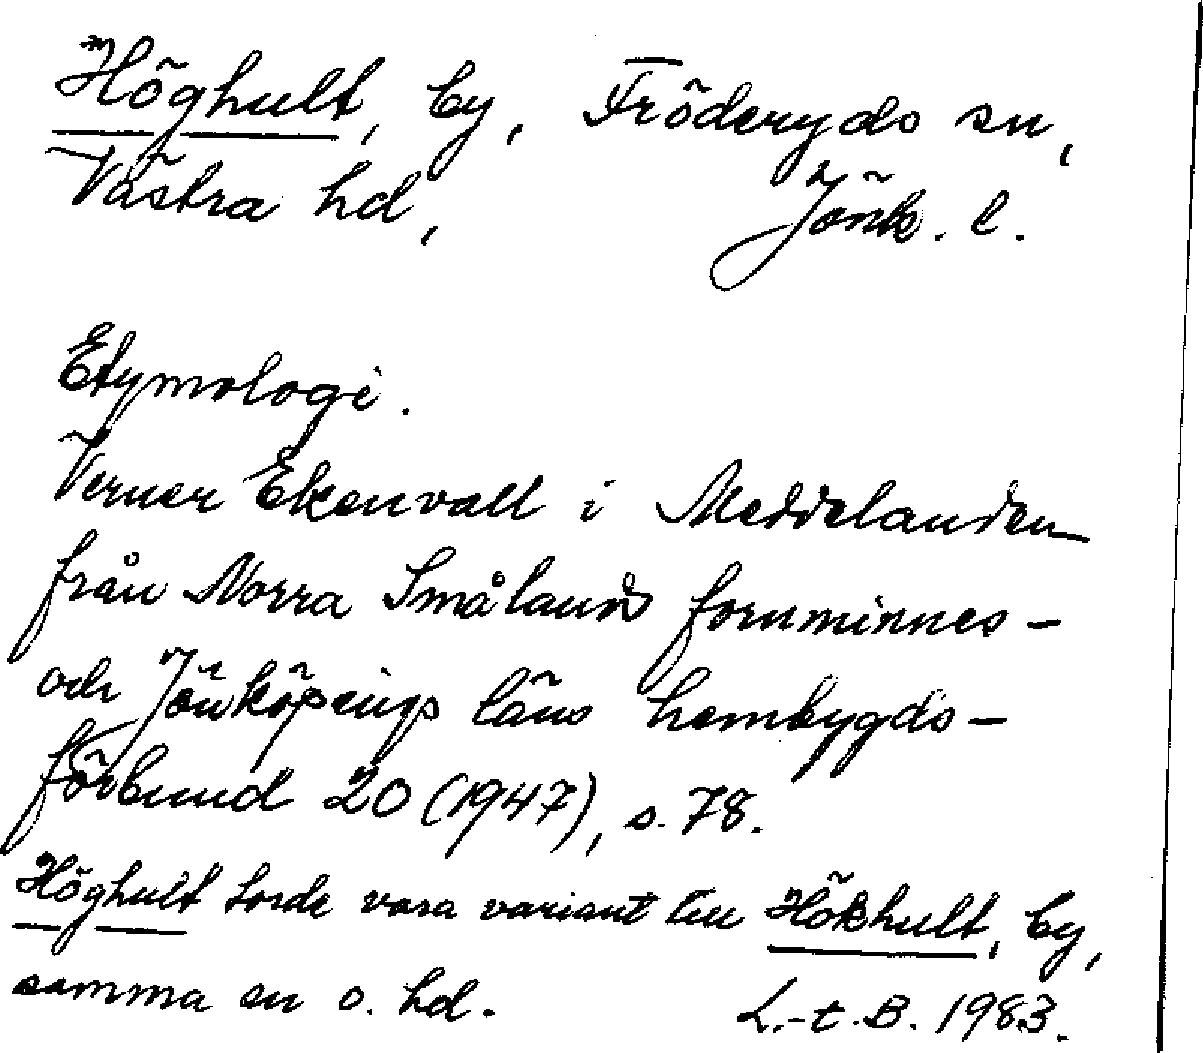 Höghult, by, Fröderyds sn,
Västra hd, Jönk. l.
Etymologi.
Verner Ekenvall i Meddelanden
från Norra Smålands fornminnes-
och Jönköpings läns hembygds-
förbund 20 (1947), s. 78.
Höghult torde vara variant till Hökhult, by,
samma sn o. hd. L.-t. B. 1983.